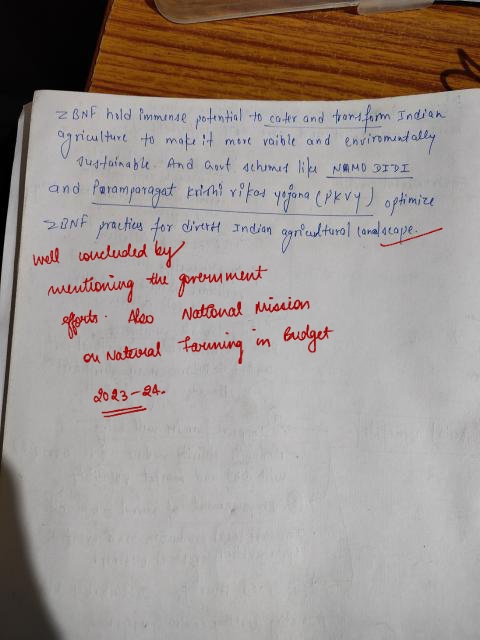 ZBNF hold immense potential to cater and transform Indian
agriculture to make it more vaible and enviromentally
sustainable. And Govt schemes like NAMO DIDI
and Paramparagat krishi vikas yojana (PKVY) optimize
ZBNF practices for diverse Indian agricultural landscape.
well concluded by
mentioning the government
efforts. Also National Mission
on Natural Farming in Budget
2023-24.